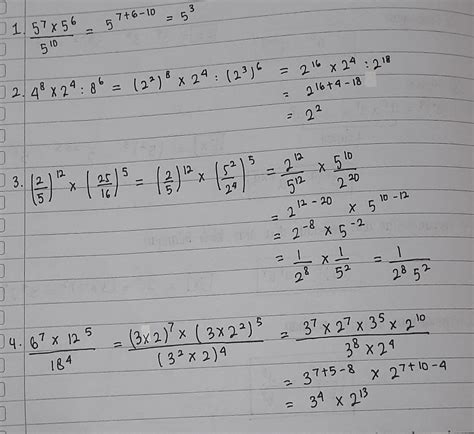 1. 5⁷ × 5⁶ / 5¹⁰ = 5⁷⁺⁶⁻¹⁰ = 5³
2. 4⁸ × 2⁴ : 8⁶ = (2²)⁸ × 2⁴ : (2³)⁶ = 2¹⁶ × 2⁴ : 2¹⁸
= 2¹⁶⁺⁴⁻¹⁸
= 2²
3. (2/5)¹² × (25/16)⁵ = (2/5)¹² × (5²/2⁴)⁵ = 2¹²/5¹² × 5¹⁰/2²⁰
= 2¹²⁻²⁰ × 5¹⁰⁻¹²
= 2⁻⁸ × 5⁻²
= 1/2⁸ × 1/5² = 1/2⁸ 5²
4. 6⁷ × 12⁵ / 18⁴ = (3×2)⁷ × (3×2²)⁵ / (3² × 2)⁴ = 3⁷ × 2⁷ × 3⁵ × 2¹⁰ / 3⁸ × 2⁴
= 3⁷⁺⁵⁻⁸ × 2⁷⁺¹⁰⁻⁴
= 3⁴ × 2¹³